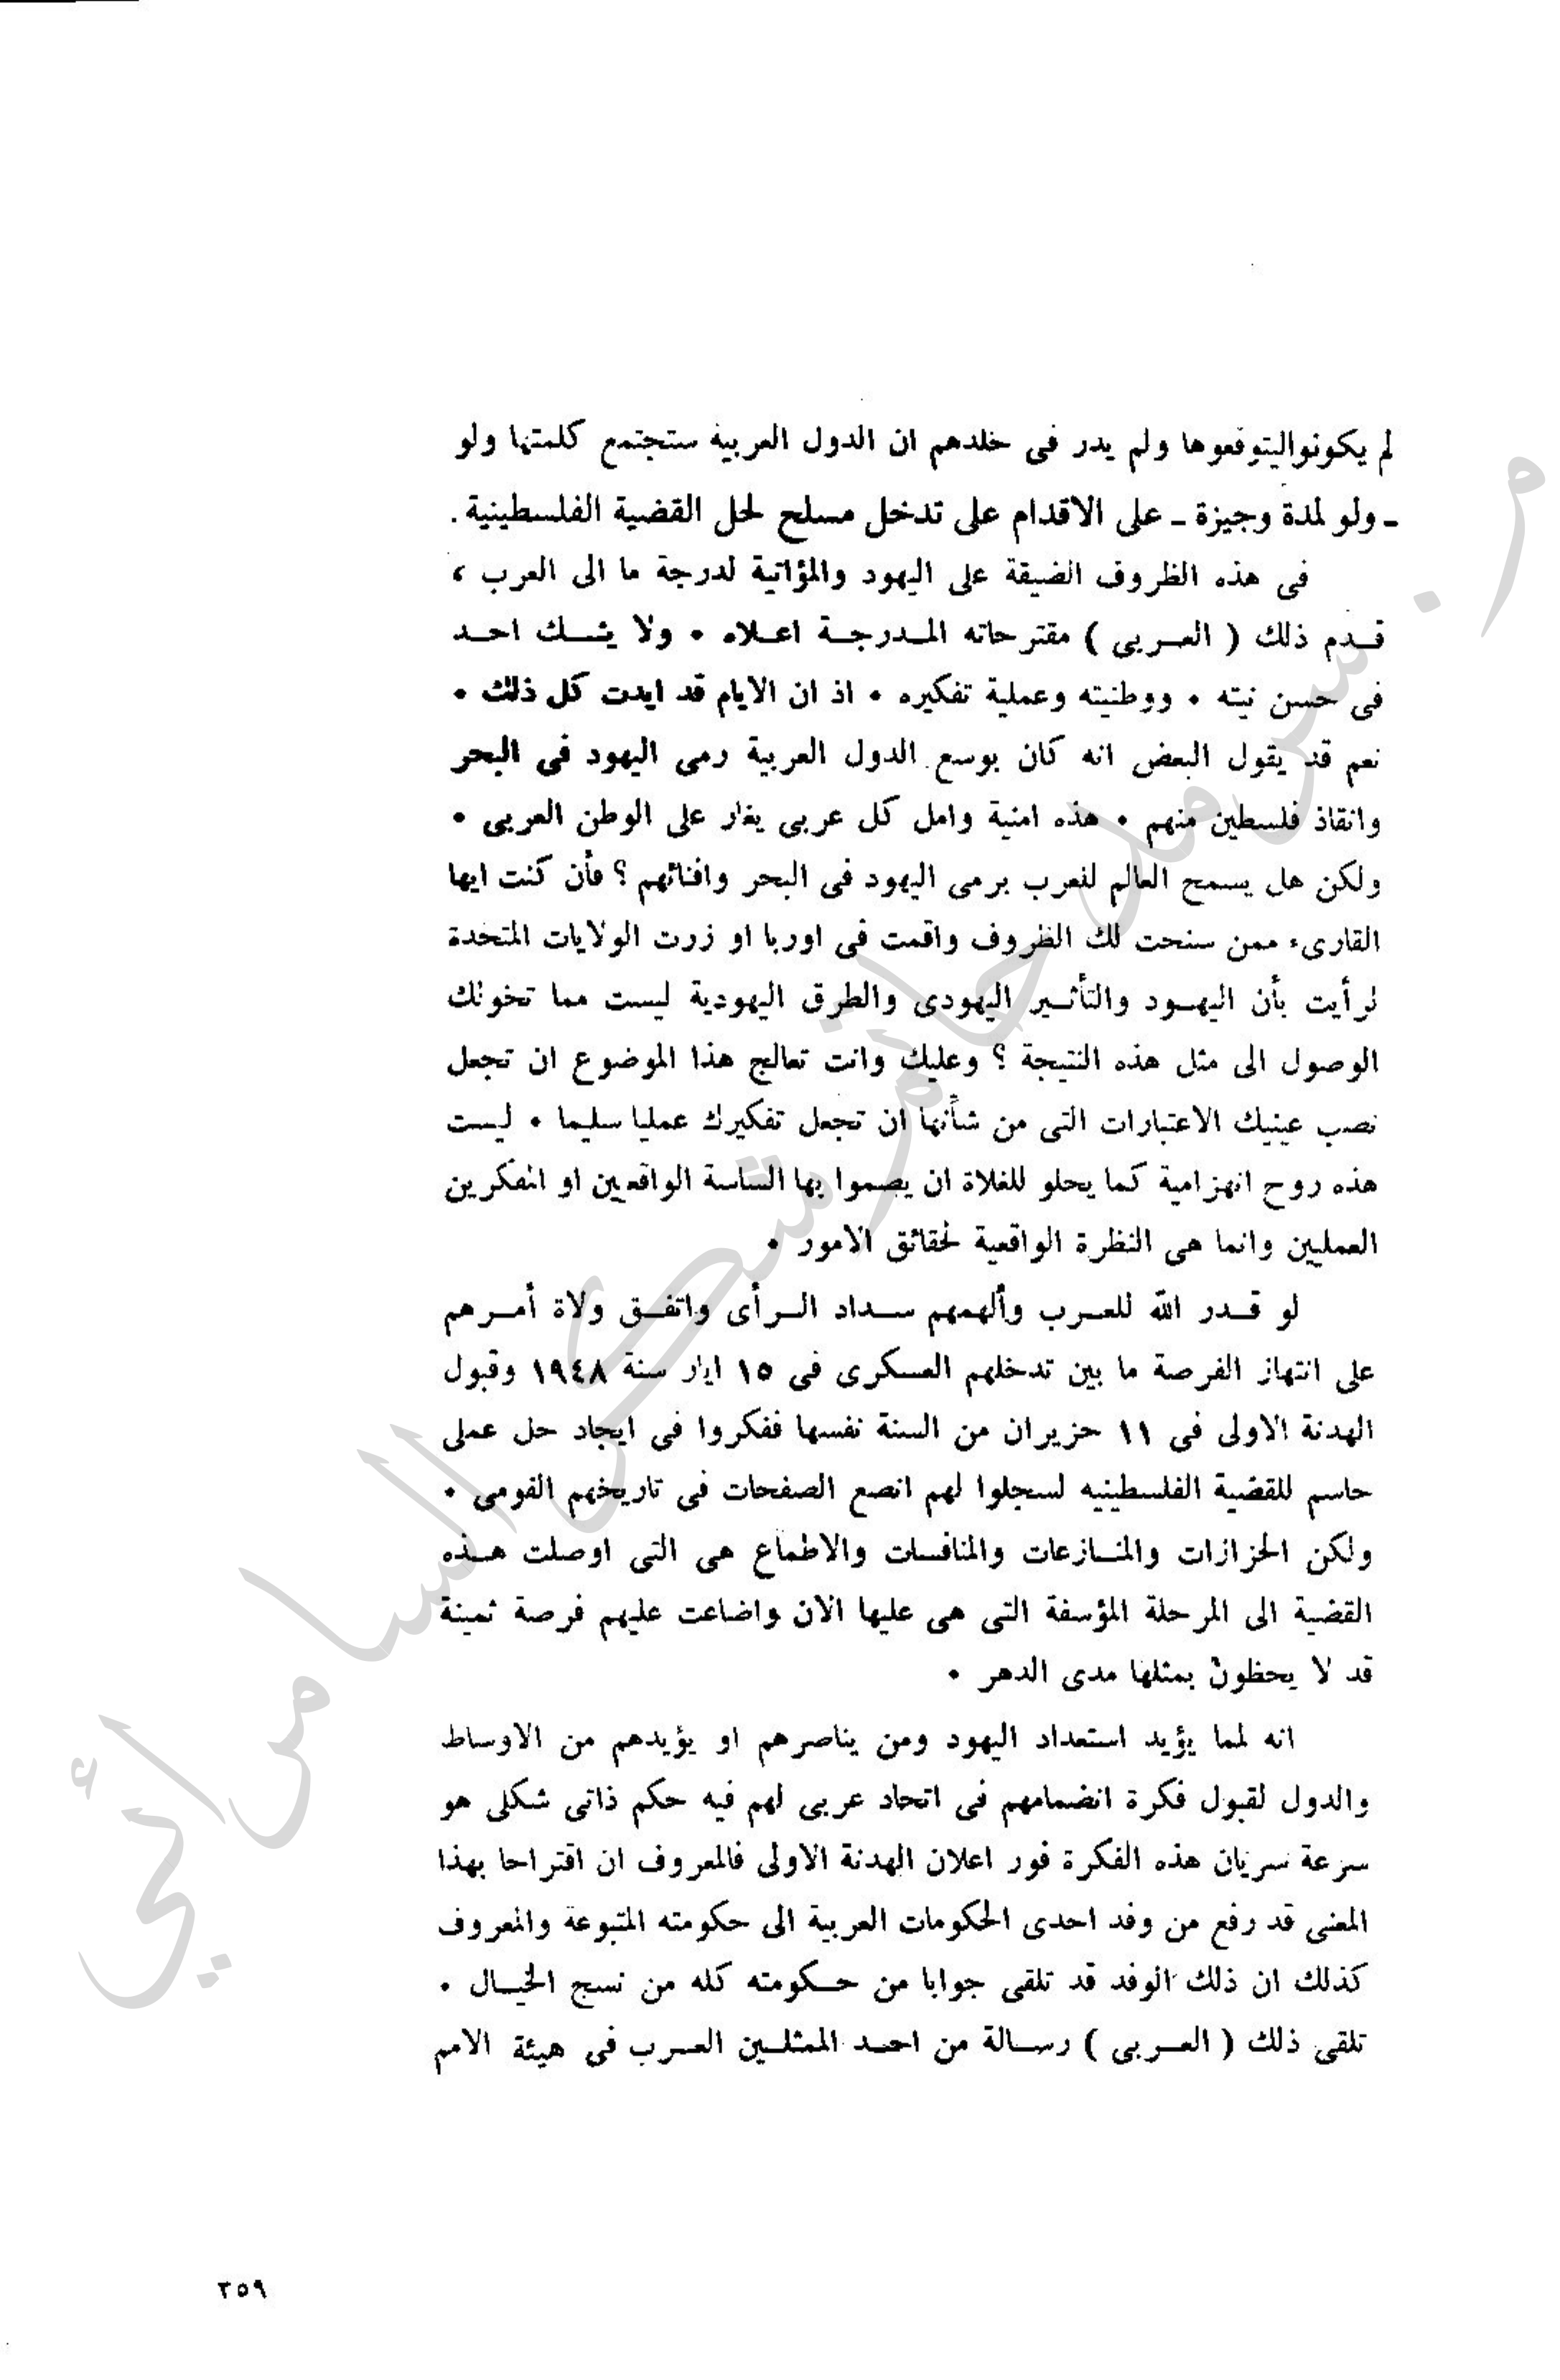 لم يكونواليتوقعوها ولم يدر فى خلدهم ان الدول العربية ستجتمع كلمتها ولو
ـ ولو لمدة وجيزة ـ على الاقدام على تدخل مسلح لحل القضية الفلسطينية .
فى هذه الظروف الضيقة على اليهود والمؤاتية لدرجة ما الى العرب ،
قـدم ذلك ( العـربى ) مقترحاته المـدرجـة اعـلاه ٠ ولا يشـك احـد
فى حسن نيته ٠ ووطنيته وعملية تفكيره ٠ اذ ان الايام قد ايدت كل ذلك ٠
نعم قد يقول البعض انه كان بوسع الدول العربية رمى اليهود فى البحر
وانقاذ فلسطين منهم ٠ هذه امنية وامل كل عربى يغار على الوطن العربى ٠
ولكن هل يسمح العالم للعرب برمى اليهود فى البحر وافنائهم ؟ فأن كنت ايها
القارىء ممن سنحت لك الظروف واقمت فى اوربا او زرت الولايات المتحدة
لرأيت بأن اليهـود والتأثـير اليهودى والطرق اليهودية ليست مما تخولك
الوصول الى مثل هذه النتيجة ؟ وعليك وانت تعالج هذا الموضوع ان تجعل
نصب عينيك الاعتبارات التى من شأنها ان تجعل تفكيرك عمليا سليما ٠ ليست
هذه روح انهزامية كما يحلو للغلاة ان يصموا بها الساسة الواقعين او المفكرين
العمليين وانما هى النظرة الواقعية لحقائق الامور ٠
لو قـدر الله للعـرب وألهمهم سـداد الـرأى واتفـق ولاة أمـرهم
على انتهاز الفرصة ما بين تدخلهم العسكرى فى ١٥ ايار سنة ١٩٤٨ وقبول
الهدنة الاولى فى ١١ حزيران من السنة نفسها ففكروا فى ايجاد حل عملى
حاسم للقضية الفلسطينيه لسجلوا لهم انصع الصفحات فى تاريخهم القومى ٠
ولكن الحزازات والمنـازعات والمنافسات والاطماع هى التى اوصلت هـذه
القضية الى المرحلة المؤسفة التى هى عليها الان واضاعت عليهم فرصة ثمينة
قد لا يحظون بمثلها مدى الدهر ٠
انه لمما يؤيد استعداد اليهود ومن يناصرهم او يؤيدهم من الاوساط
والدول لقبول فكرة انضمامهم فى اتحاد عربى لهم فيه حكم ذاتى شكلى هو
سرعة سريان هذه الفكرة فور اعلان الهدنة الاولى فالمعروف ان اقتراحا بهذا
المعنى قد رفع من وفد احدى الحكومات العربية الى حكومته المتبوعة والمعروف
كذلك ان ذلك الوفد قد تلقى جوابا من حـكومته كله من نسج الخيـال ٠
تلقى ذلك ( العـربى ) رسـالة من احـد الممثلـين العـرب فى هيئة الامم
٢٥٩
م. سرمد حاتم شكر السامرائي